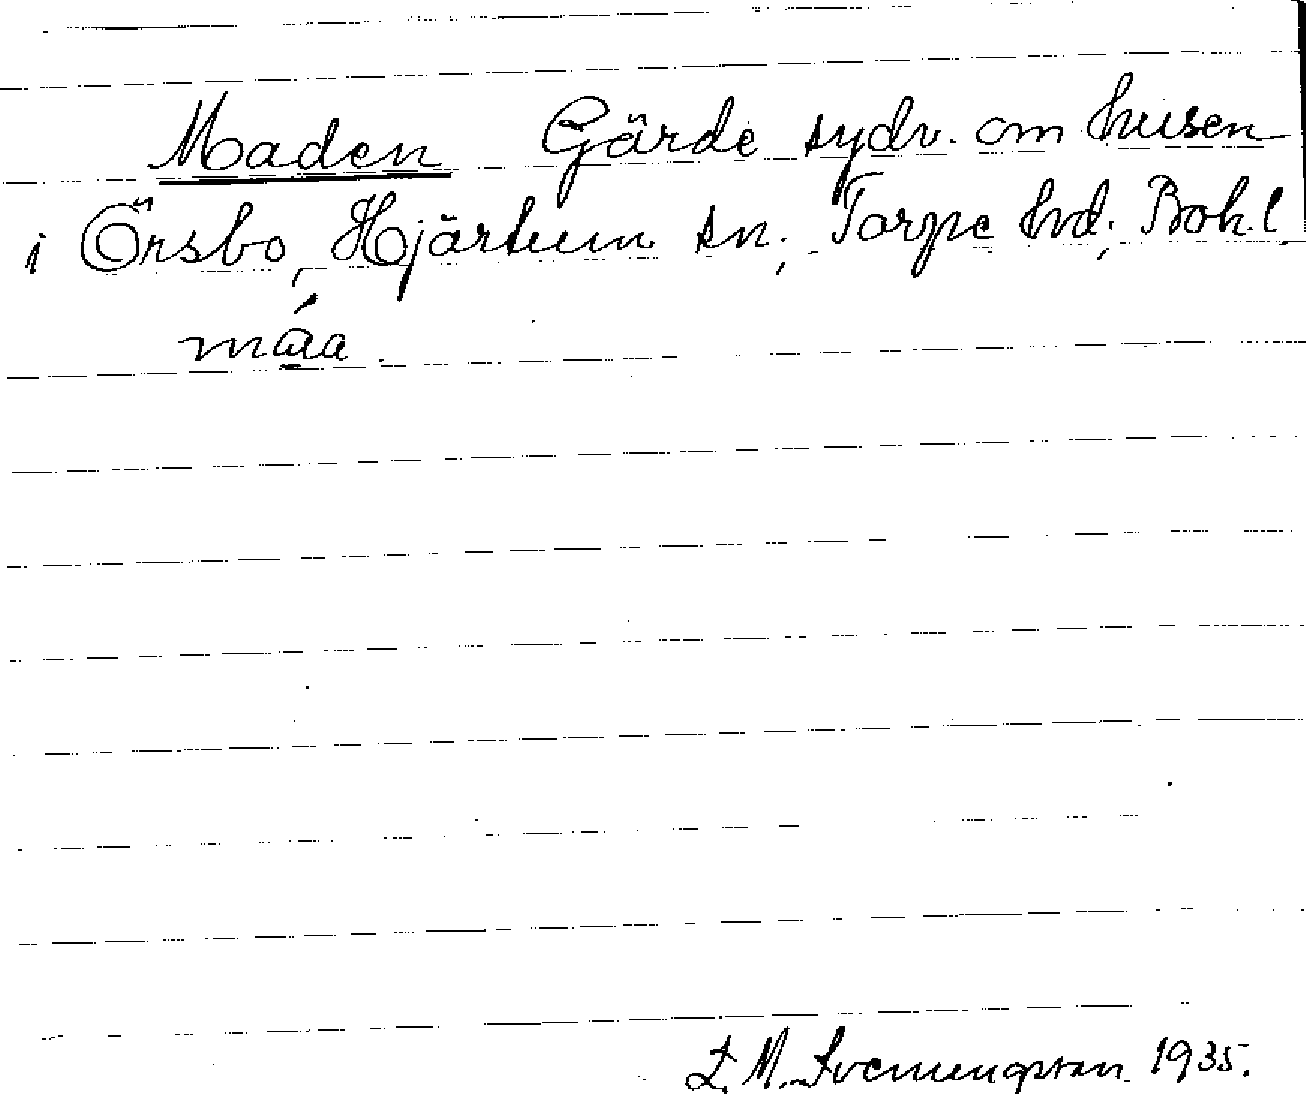 Maden Gärde sydv. om husen
i Örsbo, Hjärtum sn; Torpe hd; Boh.l.
måa
F. M. Svenungsson 1935.